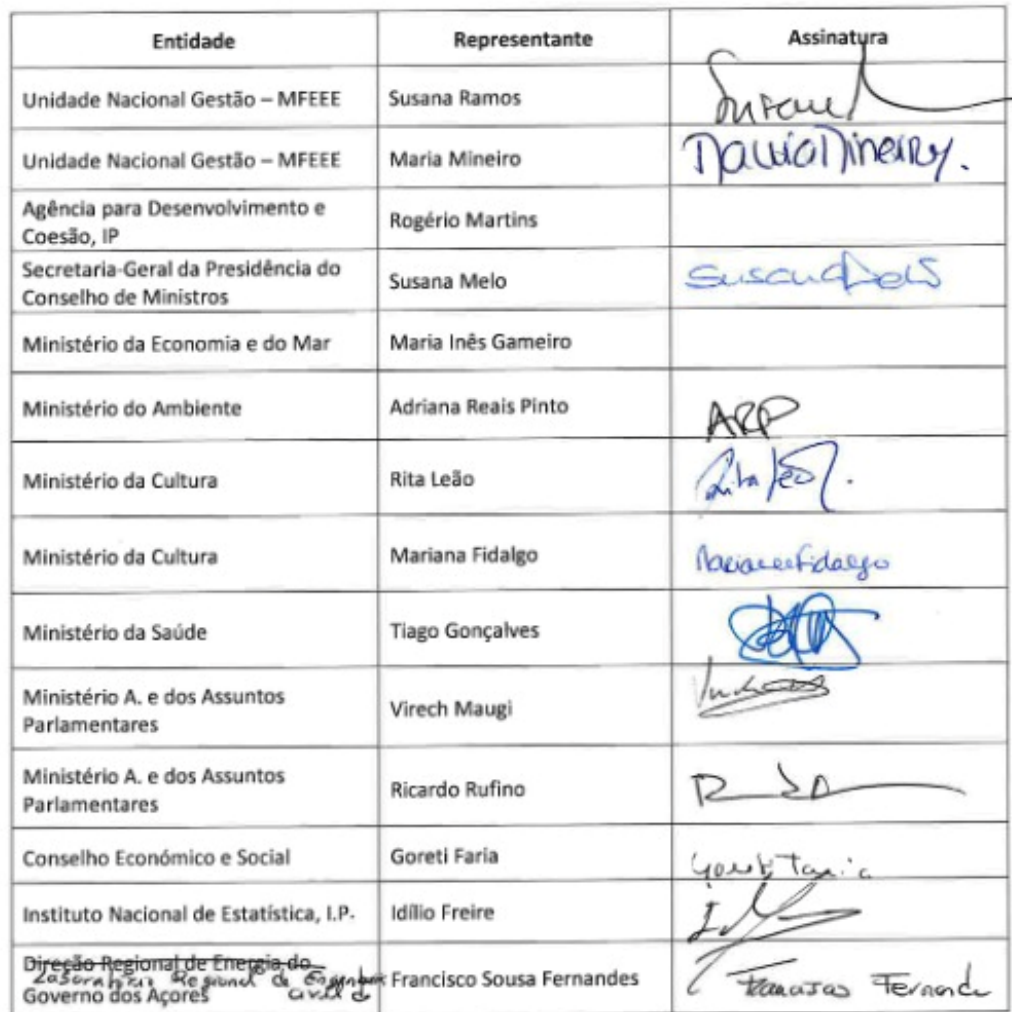 Entidade Representante Assinatura
Unidade Nacional Gestão – MFEEE Susana Ramos Susana
Unidade Nacional Gestão – MFEEE Maria Mineiro Maria Mineiro.
Agência para Desenvolvimento e
Coesão, IP Rogério Martins
Secretaria-Geral da Presidência do
Conselho de Ministros Susana Melo Susana Melo
Ministério da Economia e do Mar Maria Inês Gameiro
Ministério do Ambiente Adriana Reais Pinto ARP
Ministério da Cultura Rita Leão Rita Leão.
Ministério da Cultura Mariana Fidalgo Mariana Fidalgo
Ministério da Saúde Tiago Gonçalves
Ministério A. e dos Assuntos
Parlamentares Virech Maugi
Ministério A. e dos Assuntos
Parlamentares Ricardo Rufino
Conselho Económico e Social Goreti Faria Goreti Faria
Instituto Nacional de Estatística, I.P. Idílio Freire
Direção Regional de Energia do
Laboratório Regional de Engenharia
Civil do
Governo dos Açores Francisco Sousa Fernandes Francisco Fernandes